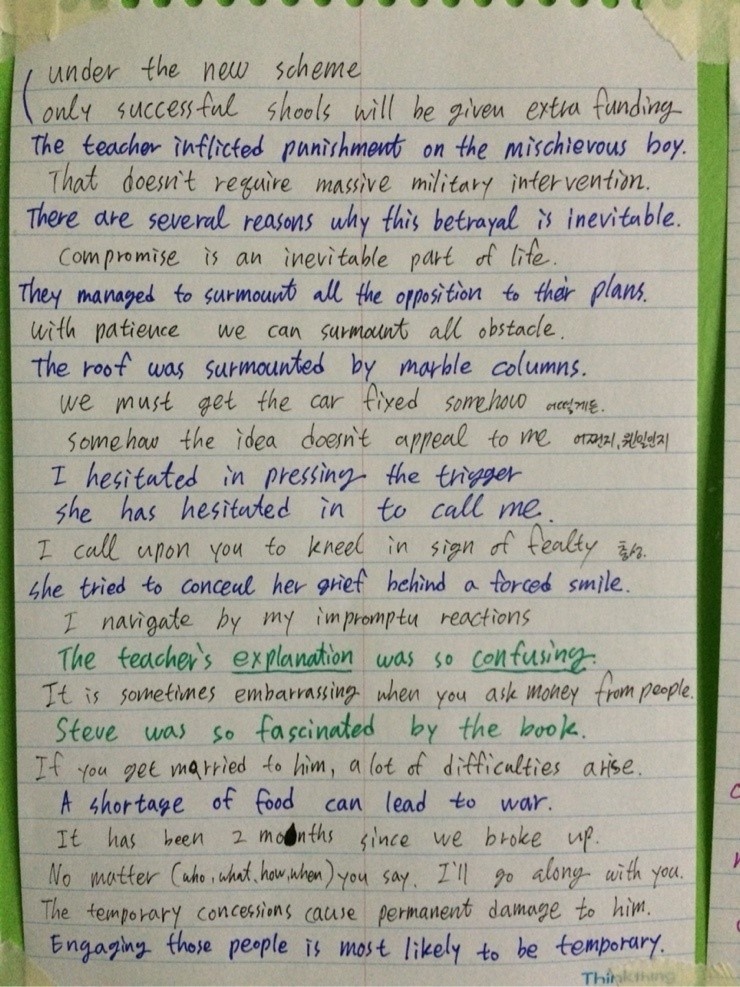 under the new scheme
only successful shools will be given extra funding
The teacher inflicted punishment on the mischievous boy.
That doesn't require massive military intervention.
There are several reasons why this betrayal is inevitable.
Compromise is an inevitable part of life.
They managed to surmount all the opposition to their plans.
With patience we can surmount all obstacle.
The roof was surmounted by marble columns.
We must get the car fixed somehow 어떻게든.
somehow the idea doesn't appeal to me 어쩐지, 웬일인지
I hesitated in pressing the trigger
she has hesitated in to call me.
I call upon you to kneel in sign of fealty 충성.
she tried to conceal her grief behind a forced smile.
I navigate by my impromptu reactions
The teacher's explanation was so confusing.
It is sometimes embarrassing when you ask money from people.
Steve was so fascinated by the book.
If you get married to him, a lot of difficulties arise.
A shortage of food can lead to war.
It has been 2 months since we broke up.
No matter (who, what, how, when) you say, I'll go along with you.
The temporary concessions cause permanent damage to him.
Engaging those people is most likely to be temporary.
Thinkthing